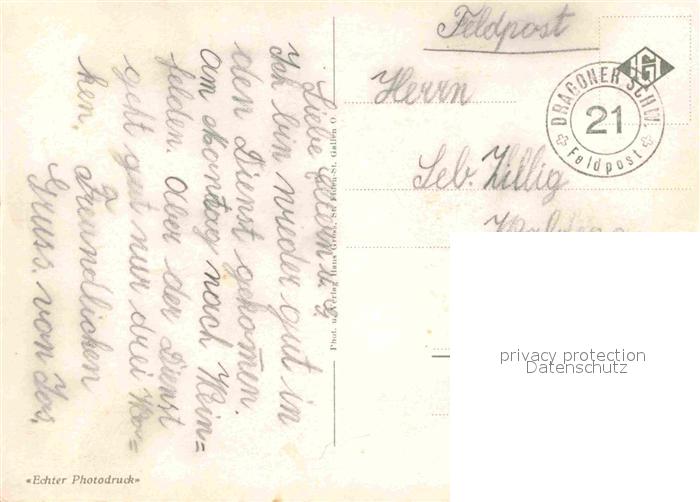 Feldpost
IGI
DRAGONER SCHW.
21
Feldpost
Herrn
Seb. Zillig
Liebe Eltern u. G
Ich bin wieder gut in
den Dienst gekom̄en.
Am Montag nach Wein=
felden. Aber der Dienst
geht gut nur drei Wo=
hen. Freundlichen
Gruss. von Jos.
Phot. u. Verlag Hans Gross, St. Fiden-St. Gallen O
«Echter Photodruck»
privacy protection
Datenschutz